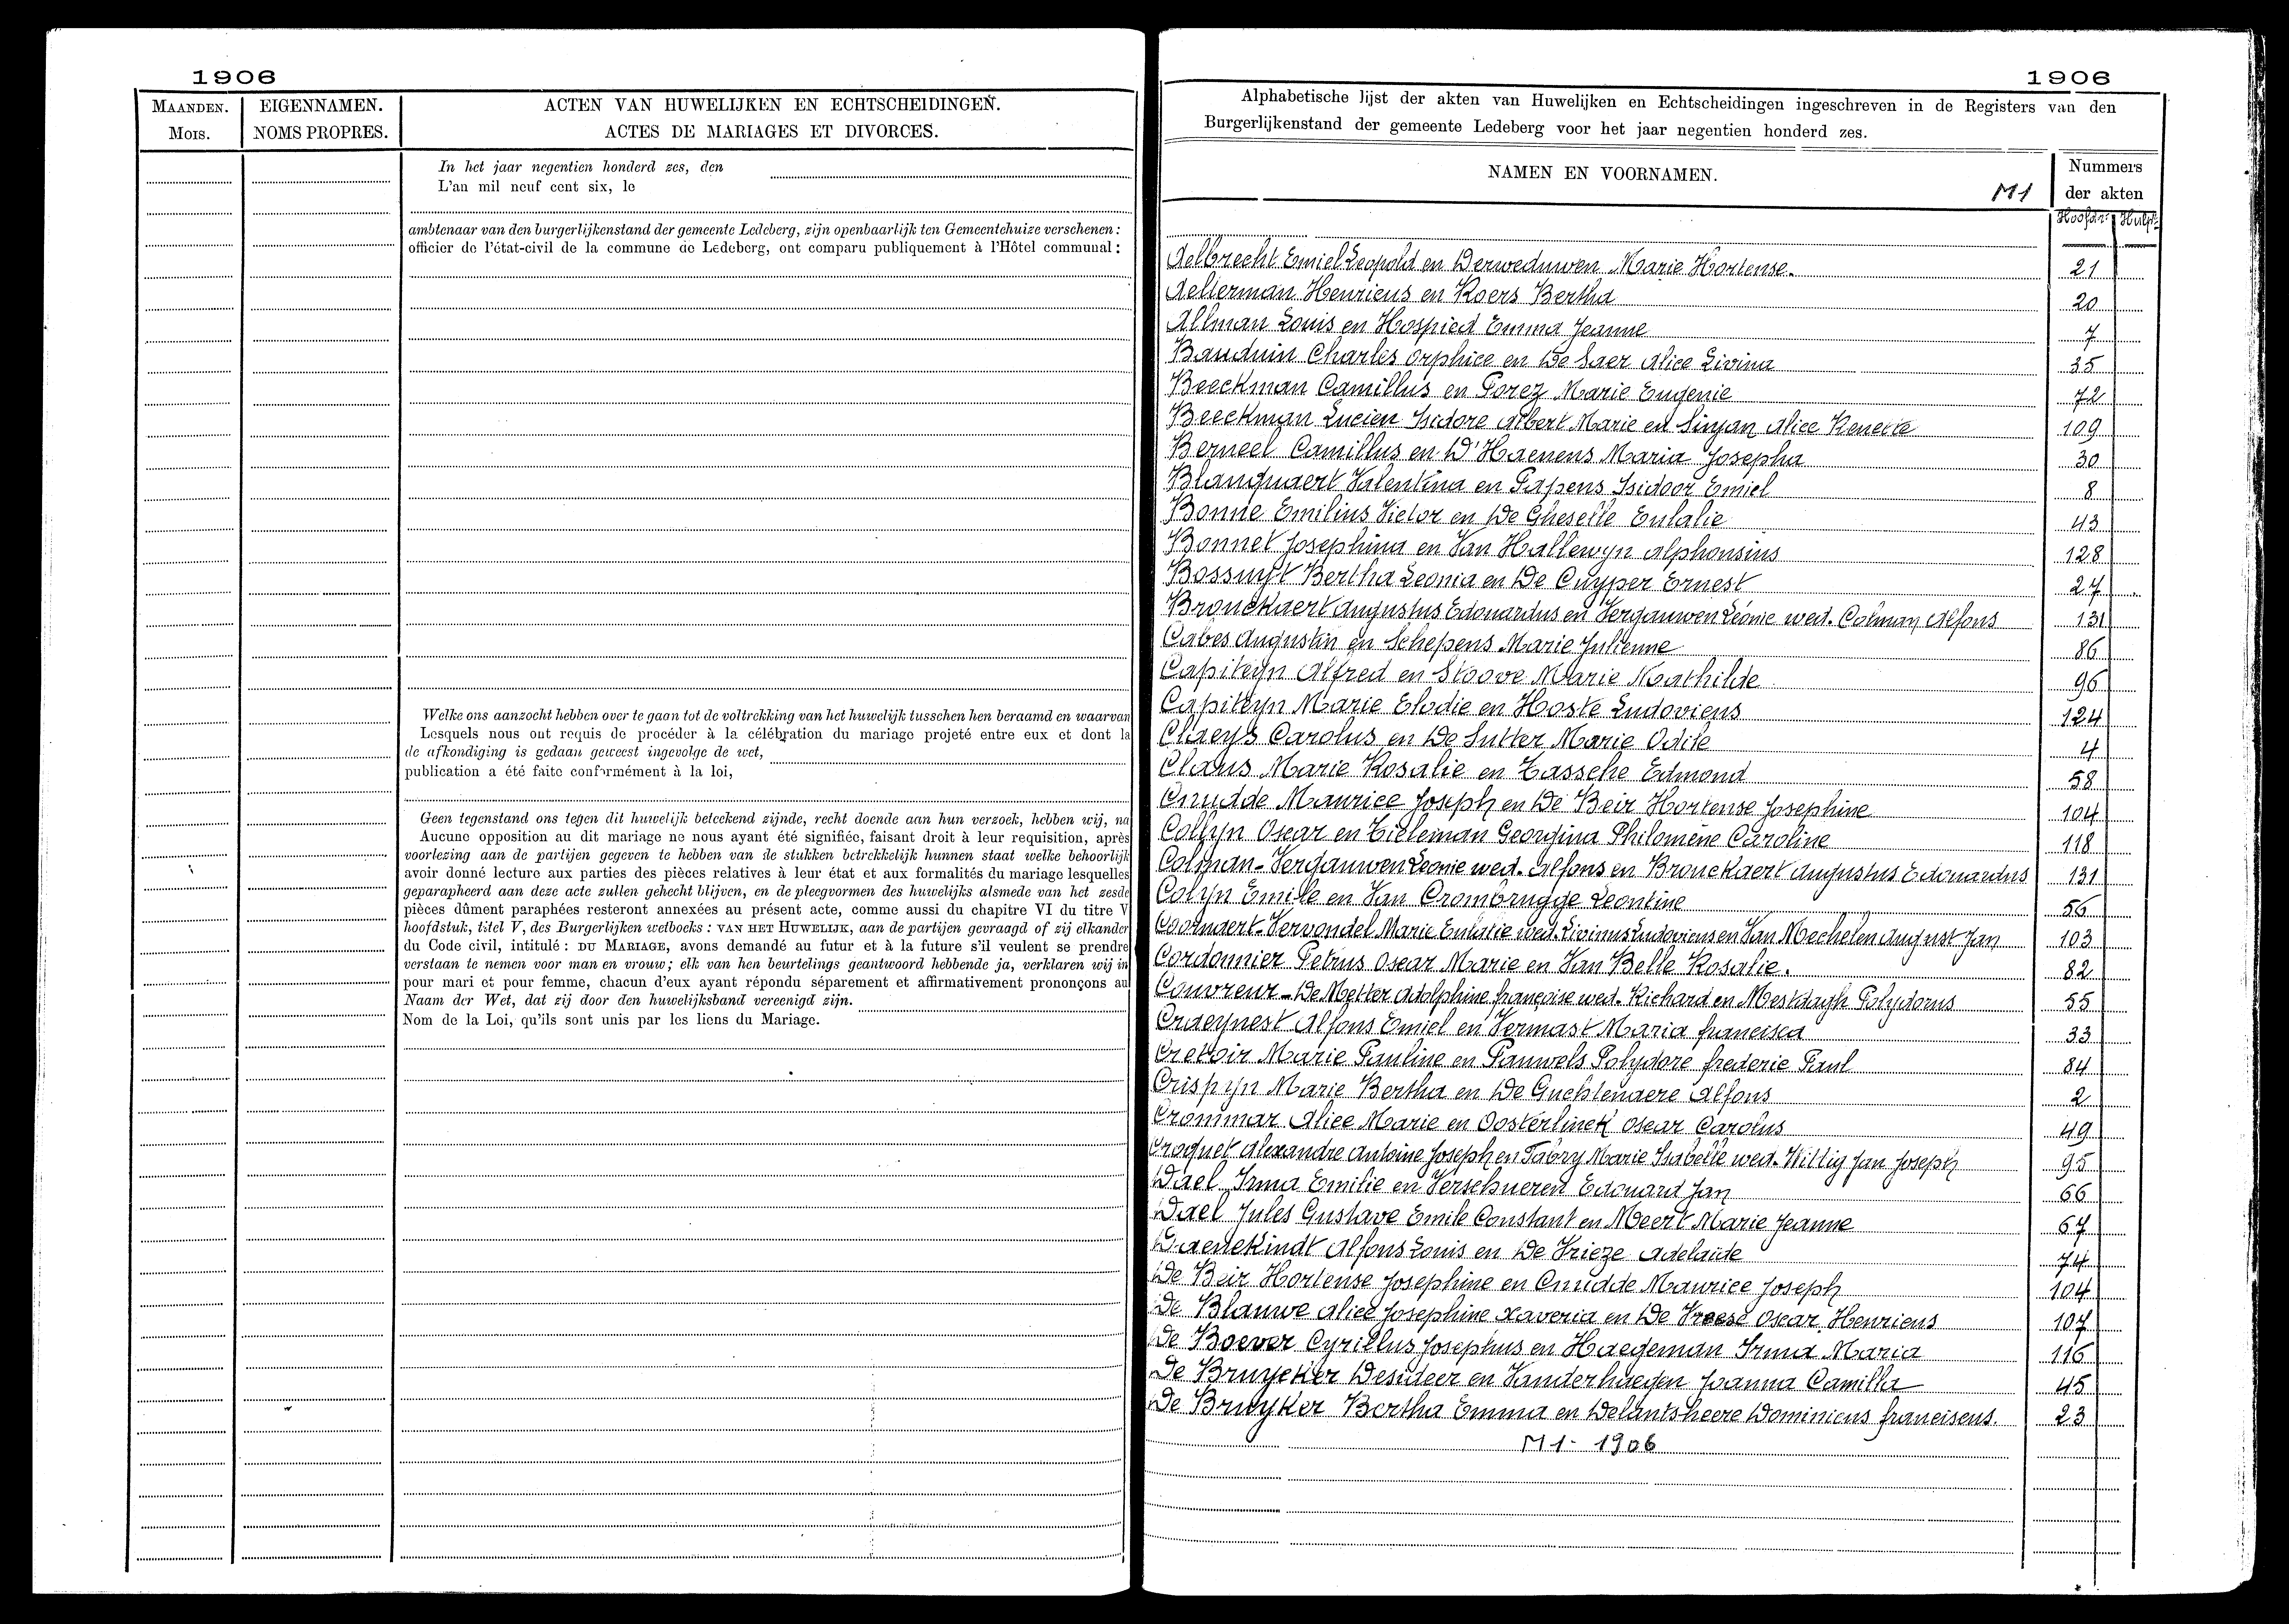 1906
MAANDEN.
MOIS.
EIGENNAMEN.
NOMS PROPRES.
ACTEN VAN HUWELIJKEN EN ECHTSCHEIDINGEN.
ACTES DE MARIAGES ET DIVORCES.
In het jaar negentien honderd zes, den
L'an mil neuf cent six, le
ambtenaar van den burgerlijkenstand der gemeente Ledeberg, zijn openbaarlijk ten Gemeentehuize verschenen :
officier de l'état-civil de la commune de Ledeberg, ont comparu publiquement à l'Hôtel communal :
Welke ons aanzocht hebben over te gaan tot de voltrekking van het huwelijk tusschen hen beraamd en waarvan
Lesquels nous ont requis de procéder à la célébration du mariage projeté entre eux et dont la
de afkondiging is gedaan geweest ingevolge de wet,
publication a été faite conformément à la loi,
Geen tegenstand ons tegen dit huwelijk beteekend zijnde, recht doende aan hun verzoek, hebben wij, na
Aucune opposition au dit mariage ne nous ayant été signifiée, faisant droit à leur requisition, après
voorlezing aan de partijen gegeven te hebben van de stukken betrekkelijk hunnen staat welke behoorlijk
avoir donné lecture aux parties des pièces relatives à leur état et aux formalités du mariage lesquelles
geparapheerd aan deze acte zullen gehecht blijven, en de pleegvormen des huwelijks alsmede van het zesde
pièces dûment paraphées resteront annexées au présent acte, comme aussi du chapitre VI du titre V
hoofdstuk, titel V, des Burgerlijken wetboeks : VAN HET HUWELIJK, aan de partijen gevraagd of zij elkander
du Code civil, intitulé : DU MARIAGE, avons demandé au futur et à la future s'il veulent se prendre
verstaan te nemen voor man en vrouw ; elk van hen beurtelings geantwoord hebbende ja, verklaren wij in
pour mari et pour femme, chacun d'eux ayant répondu séparement et affirmativement prononçons au
Naam der Wet, dat zij door den huwelijksband vereenigd zijn.
Nom de la Loi, qu'ils sont unis par les liens du Mariage.
1906
Alphabetische lijst der akten van Huwelijken en Echtscheidingen ingeschreven in de Registers van den
Burgerlijkenstand der gemeente Ledeberg voor het jaar negentien honderd zes.
NAMEN EN VOORNAMEN.
M1
Nummers
der akten
Hoofdn^r Hulpn^r
Aelbrecht Emiel Leopold en Verweduwen Marie Hortense. 21
Aelterman Henricus en Roers Bertha 20
Allman Louis en Hospied Emma Jeanne 7
Bauduin Charles Orphice en De Saer Alice Livina 35
Beeckman Camillus en Porez Marie Eugenie 72
Beeckman Lucien Isidore Albert Marie en Sinjan Alice Renette 109
Berneel Camillus en D'Haenens Maria Josepha 30
Blanquaert Valentina en Papens Isidoor Emiel 8
Bonne Emilius Victor en De Gheselle Eulalie 43
Bonnet Josephina en Van Hallewyn Alphonsius 128
Bossuyt Bertha Leonia en De Cuyper Ernest 27
Brouckaert Augustus Edouardus en Vergauwen Léonie wed. Colman Alfons 131
Cabes Augustin en Schepens Marie Julienne 86
Capiteyn Alfred en Stoove Marie Mathilde 96
Capiteyn Marie Elodie en Hoste Ludovicus 124
Claeys Carolus en De Sutter Marie Odile 4
Claus Marie Rosalie en Tassche Edmond 58
Cnudde Maurice Joseph en De Beir Hortense Josephine 104
Collyn Oscar en Tieleman Georgina Philomène Caroline 118
Colman-Vergauwen Leonie wed. Alfons en Brouckaert Augustus Edouardus 131
Colyn Emile en Van Crombrugge Leontine 56
Coornaert-Vervondel Marie Eulalie wed. Livinus Ludovicus en Van Mechelen August Jan 103
Cordonnier Petrus Oscar Marie en Van Belle Rosalie. 82
Couvreur-De Metter Adolphine françoise wed. Richard en Mestdagh Polydorus 55
Craeynest Alfons Emiel en Vermast Maria francisca 33
Cretoir Marie Pauline en Pauwels Polydore frederic Paul 84
Crispyn Marie Bertha en De Guchtenaere Alfons 2
Crommar Alice Marie en Oosterlinck Oscar Carolus 49
Croquet Alexandre Antoine Joseph en Fabry Marie Isabelle wed. Wittig Jan Joseph 95
Dael Irma Emilie en Verschueren Edouard Jan 66
Dael Jules Gustave Emile Constant en Meert Marie Jeanne 67
Daenekindt Alfons Louis en De Vrieze Adelaïde 74
De Beir Hortense Josephine en Cnudde Maurice Joseph 104
De Blauwe Alice Josephine Xaveria en De Vreese Oscar Henricus 107
De Boever Cyrillus Josephus en Haegeman Irma Maria 116
De Bruycker Desideer en Vanderhaegen Joanna Camilla 45
De Bruyker Bertha Emma en Delantsheere Dominicus franciscus. 23
M1- 1906